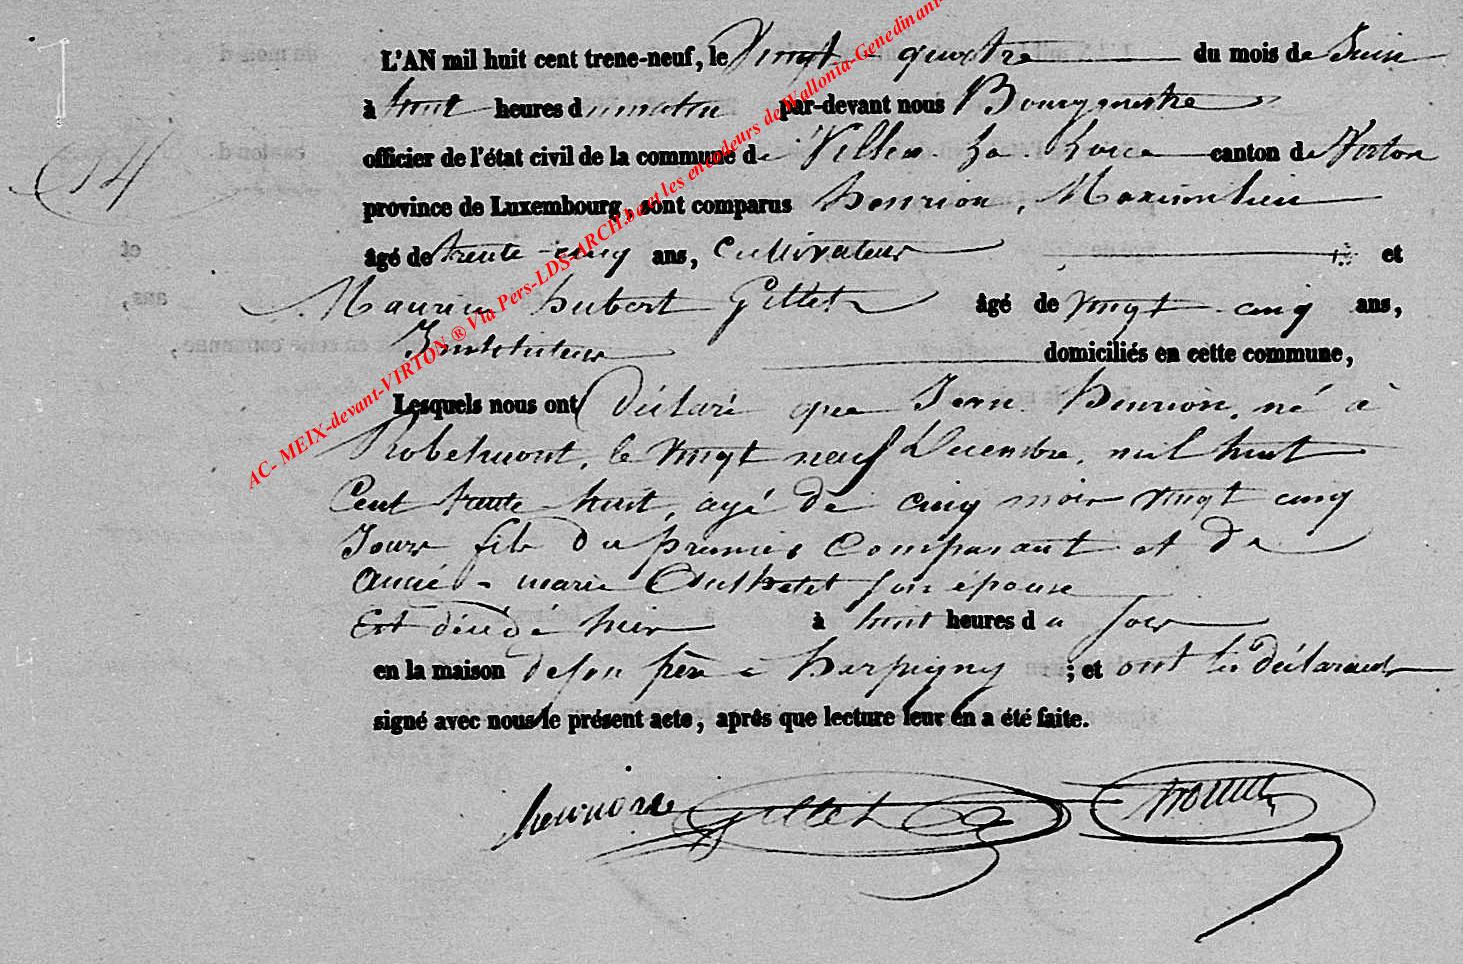 L'AN mil huit cent trene-neuf, le Vingt-quatre du mois de Juin
à huit heures du matin par-devant nous Bourgmestre
14
officier de l'état civil de la commune de Villers La Loue canton de Virton
province de Luxembourg, sont comparus henrion, Maximilien
âgé de trente-cinq ans, Cultivateur et
Maurice hubert Gillet âgé de vingt-cinq ans,
Instituteur domiciliés en cette commune,
Lesquels nous ont déclaré que Jean henrion, né à
Robelmont, le vingt neuf Décembre, mil huit
Cent trente huit, agé de cinq mois vingt cinq
Jours fils du premier Comparant et de
marie son épouse
Est décédé hier à huit heures du soir
en la maison de son père à harpigny ; et ont les déclarants
signé avec nous le présent acte, après que lecture leur en a été faite.
henrion Gillet
AC- MEIX-devant-VIRTON ® Via Pers-LDS-ARCH.be et les encodeurs de Wallonia-Genedinant